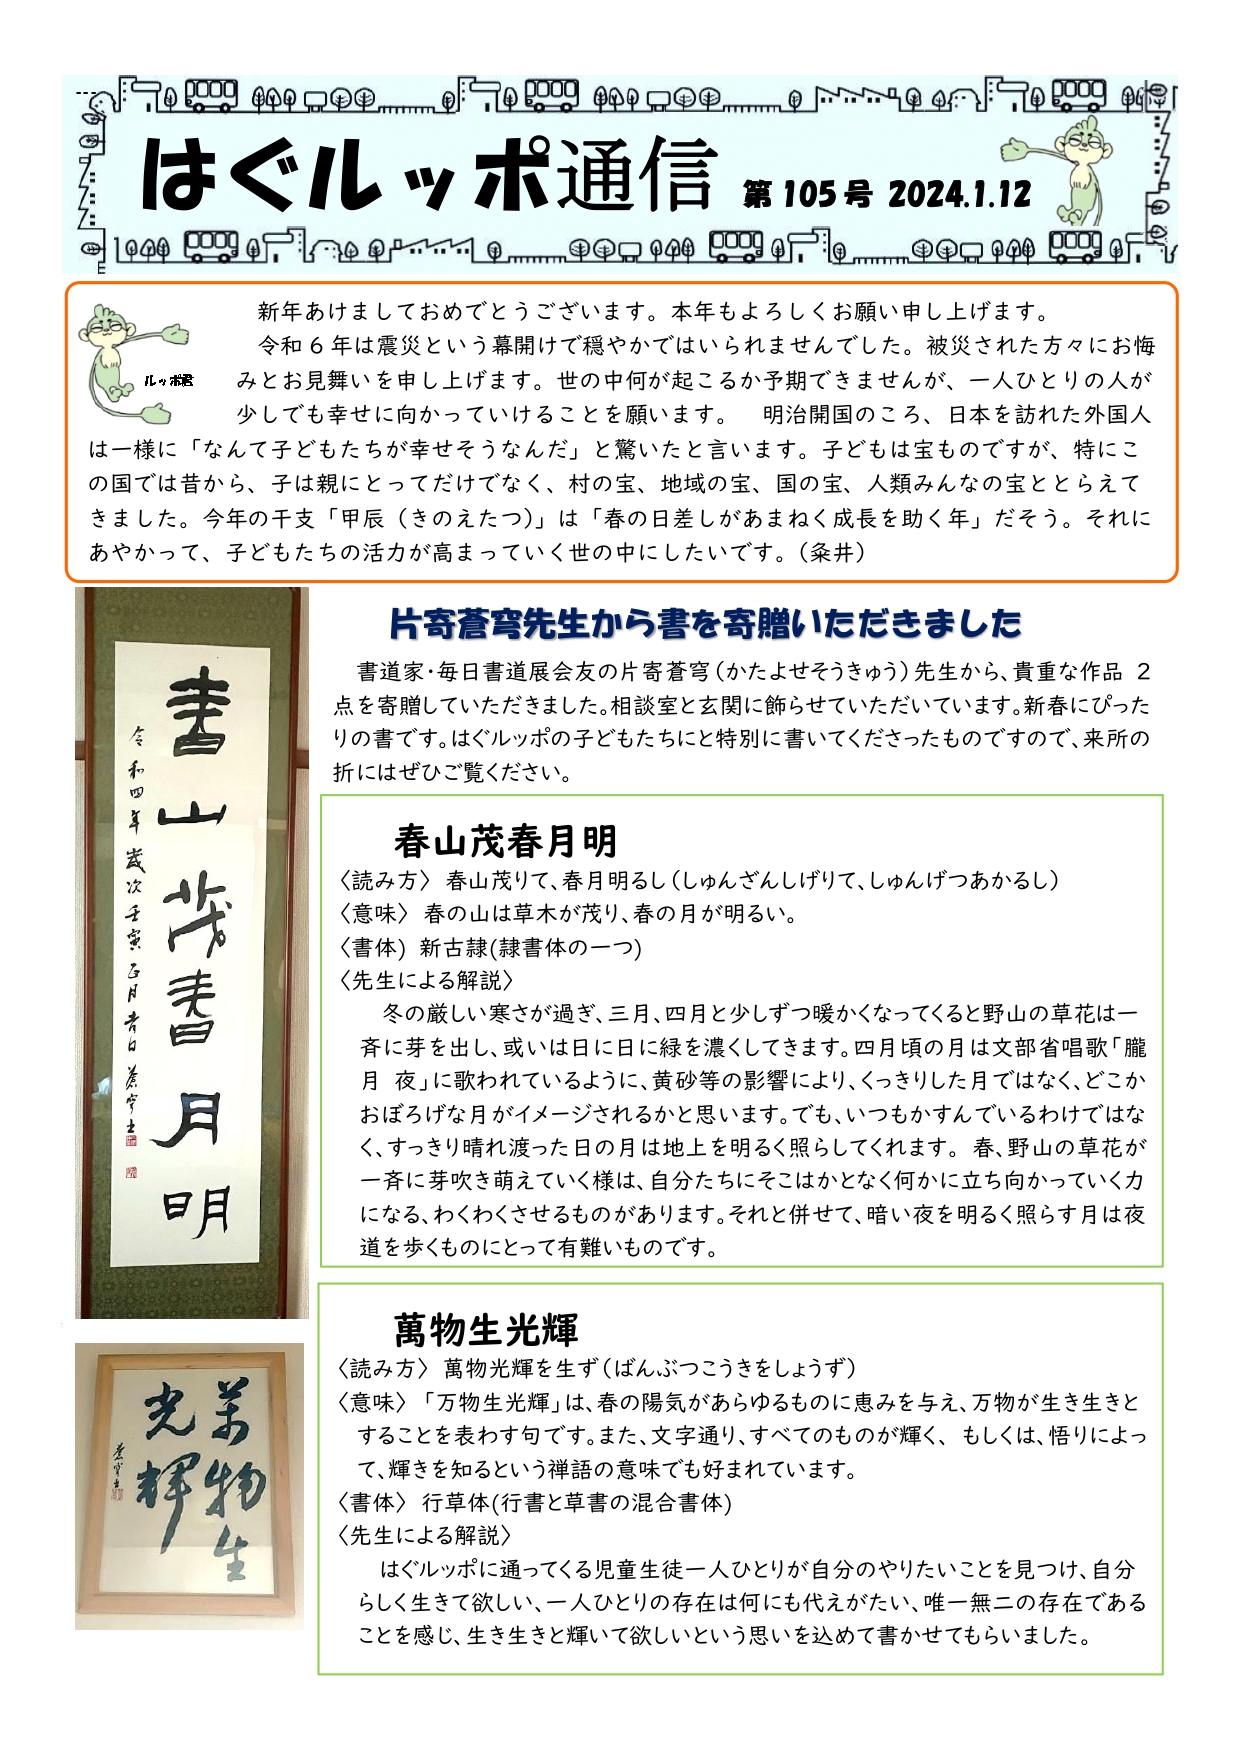 はぐルッポ通信 第105号 2024.1.12
新年あけましておめでとうございます。本年もよろしくお願い申し上げます。
令和6年は震災という幕開けで穏やかではいられませんでした。被災された方々にお悔
ルッポ君
みとお見舞いを申し上げます。世の中何が起こるか予期できませんが、一人ひとりの人が
少しでも幸せに向かっていけることを願います。　明治開国のころ、日本を訪れた外国人
は一様に「なんて子どもたちが幸せそうなんだ」と驚いたと言います。子どもは宝ものですが、特にこ
の国では昔から、子は親にとってだけでなく、村の宝、地域の宝、国の宝、人類みんなの宝ととらえて
きました。今年の干支「甲辰（きのえたつ）」は「春の日差しがあまねく成長を助く年」だそう。それに
あやかって、子どもたちの活力が高まっていく世の中にしたいです。（粂井）
片寄蒼穹先生から書を寄贈いただきました
書道家・毎日書道展会友の片寄蒼穹（かたよせそうきゅう）先生から、貴重な作品 2
点を寄贈していただきました。相談室と玄関に飾らせていただいています。新春にぴった
りの書です。はぐルッポの子どもたちにと特別に書いてくださったものですので、来所の
折にはぜひご覧ください。
春山茂春月明
令和四年歳次壬寅正月吉日 蒼穹士
春山茂春月明
〈読み方〉 春山茂りて、春月明るし（しゅんざんしげりて、しゅんげつあかるし）
〈意味〉 春の山は草木が茂り、春の月が明るい。
〈書体) 新古隷(隷書体の一つ)
〈先生による解説〉
冬の厳しい寒さが過ぎ、三月、四月と少しずつ暖かくなってくると野山の草花は一
斉に芽を出し、或いは日に日に緑を濃くしてきます。四月頃の月は文部省唱歌「朧
月 夜」に歌われているように、黄砂等の影響により、くっきりした月ではなく、どこか
おぼろげな月がイメージされるかと思います。でも、いつもかすんでいるわけではな
く、すっきり晴れ渡った日の月は地上を明るく照らしてくれます。 春、野山の草花が
一斉に芽吹き萌えていく様は、自分たちにそこはかとなく何かに立ち向かっていく力
になる、わくわくさせるものがあります。それと併せて、暗い夜を明るく照らす月は夜
道を歩くものにとって有難いものです。
萬物生
光輝
蒼穹士
萬物生光輝
〈読み方〉 萬物光輝を生ず（ばんぶつこうきをしょうず）
〈意味〉「万物生光輝」は、春の陽気があらゆるものに恵みを与え、万物が生き生きと
することを表わす句です。また、文字通り、すべてのものが輝く、 もしくは、悟りによっ
て、輝きを知るという禅語の意味でも好まれています。
〈書体〉 行草体(行書と草書の混合書体)
〈先生による解説〉
はぐルッポに通ってくる児童生徒一人ひとりが自分のやりたいことを見つけ、自分
らしく生きて欲しい、一人ひとりの存在は何にも代えがたい、唯一無二の存在である
ことを感じ、生き生きと輝いて欲しいという思いを込めて書かせてもらいました。